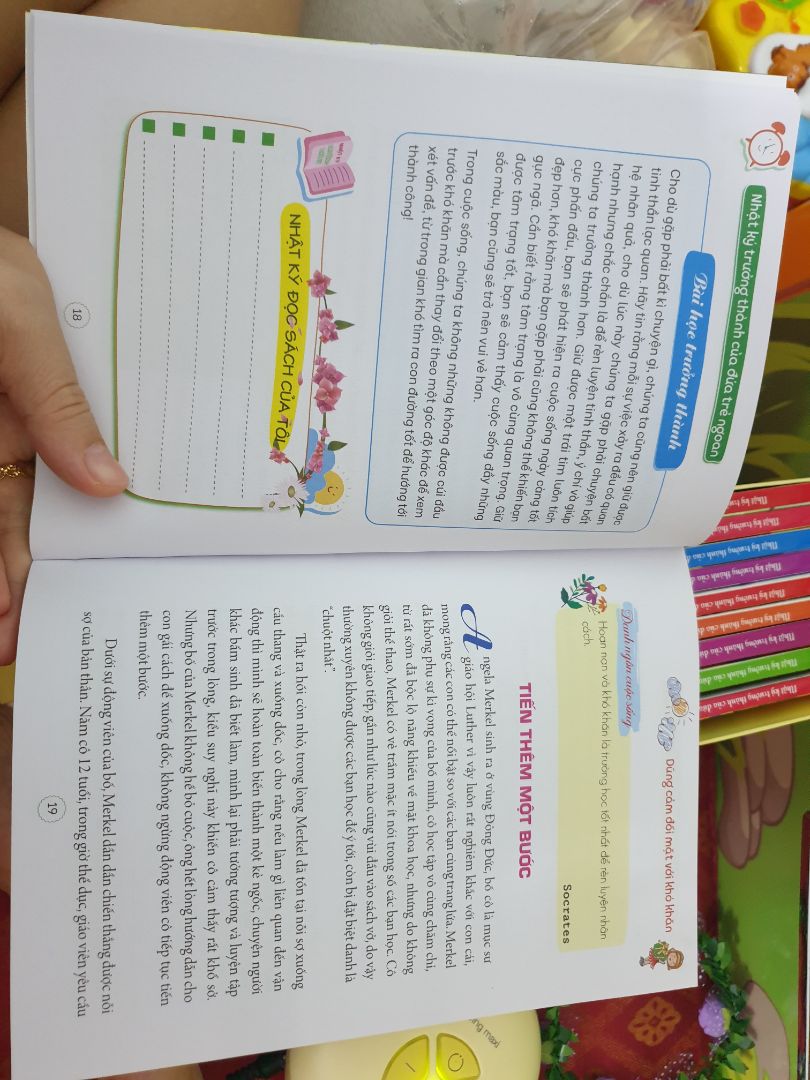 Nhật ký trưởng thành của đứa trẻ ngoan
Bài học trưởng thành
Cho dù gặp phải bất kì chuyện gì, chúng ta cũng nên giữ được
tinh thần lạc quan. Hãy tin rằng mỗi sự việc xảy ra đều có quan
hệ nhân quả, cho dù lúc này chúng ta gặp phải chuyện bất
hạnh nhưng chắc chắn là để rèn luyện tinh thần, ý chí và giúp
chúng ta trưởng thành hơn. Giữ được một trái tim luôn tích
cực phấn đấu, bạn sẽ phát hiện ra cuộc sống ngày càng tốt
đẹp hơn, khó khăn mà bạn gặp phải cũng không thể khiến bạn
gục ngã. Cần biết rằng tâm trạng là vô cùng quan trọng. Giữ
được tâm trạng tốt, bạn sẽ cảm thấy cuộc sống đầy những
sắc màu, bạn cũng sẽ trở nên vui vẻ hơn.
Trong cuộc sống, chúng ta không những không được cúi đầu
trước khó khăn mà cần thay đổi theo một góc độ khác để xem
xét vấn đề, từ trong gian khó tìm ra con đường tốt để hướng tới
thành công!
NHẬT KÝ ĐỌC SÁCH CỦA TÔI
18
Dũng cảm đối mặt với khó khăn
Danh ngôn cuộc sống
Hoạn nạn và khó khăn là trường học tốt nhất để rèn luyện nhân
cách.
Socrates
TIẾN THÊM MỘT BƯỚC
Angela Merkel sinh ra ở vùng Đông Đức, bố cô là mục sư
giáo hội Luther vì vậy luôn rất nghiêm khắc với con cái,
mong rằng các con có thể nổi bật so với các bạn cùng trang lứa. Merkel
đã không phụ sự kì vọng của bố mình, cô học tập vô cùng chăm chỉ,
từ rất sớm đã bộc lộ năng khiếu về mặt khoa học, nhưng do không
giỏi thể thao, Merkel có vẻ trầm mặc ít nói trong số các bạn học. Cô
không giỏi giao tiếp, gần như lúc nào cũng vùi đầu vào sách vở, do vậy
thường xuyên không được các bạn học để ý tới, còn bị đặt biệt danh là
“chuột nhắt”.
Thật ra hồi còn nhỏ, trong lòng Merkel đã tồn tại nỗi sợ xuống
cầu thang và xuống dốc, cô cho rằng nếu làm gì liên quan đến vận
động thì mình sẽ hoàn toàn biến thành một kẻ ngốc, chuyện người
khác bẩm sinh đã biết làm, mình lại phải tưởng tượng và luyện tập
trước trong lòng, kiểu suy nghĩ này khiến cô cảm thấy rất khổ sở.
Nhưng bố của Merkel không hề bỏ cuộc, ông hết lòng hướng dẫn cho
con gái cách để xuống dốc, không ngừng động viên cô tiếp tục tiến
thêm một bước.
Dưới sự động viên của bố, Merkel dần dần chiến thắng được nỗi
sợ của bản thân. Năm cô 12 tuổi, trong giờ thể dục, giáo viên yêu cầu
19
Nhật ký trưởng thành của đứa
Nhật ký trưởng thành của đứa
Nhật ký trưởng thành của đứa
Nhật ký trưởng thành của đứa
Nhật ký trưởng thành của đứa
Nhật ký trưởng thành của đứa
Nhật ký trưởng thành của đứa
maxi